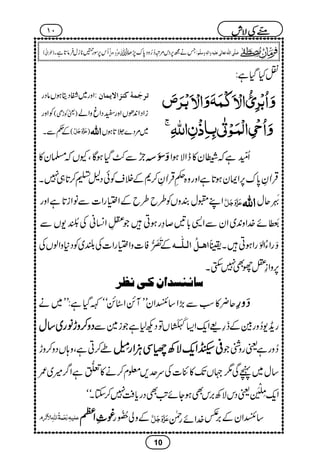 مُنّے کی لاش ۱۰
فرمانِ مصطفےٰ صلی اللہ تعالیٰ علیہ والہٖ وسلم جس نے مجھ پر دس مرتبہ دُرُود پاک پڑھا اللہ اُس پر سو رحمتیں نازِل فرماتا ہے۔
نقل کیا گیا ہے:
وَاُبْرِئُ الْاَكْمَهَ وَالْاَبْرَصَ
وَاُحْیِ الْمَوْتٰى بِاِذْنِ اللّٰهِۚ
ترجَمۂ کنز الایمان: اور میں شفا دیتا ہوں مادر
زاد اندھوں اور سفید داغ والے (یعنی کوڑھی) کو اور
میں مردے جلاتا ہوں اللہ (عَزَّوَجَلَّ) کے حکم سے۔
اُمّید ہے کہ شیطان کا ڈالا ہوا وَسوَسہ جڑ سے کٹ گیا ہوگا، کیوں کہ مسلمان کا
قراٰنِ پاک پر ایمان ہوتا ہے اور وہ حکمِ قراٰنِ کریم کے خلاف کوئی دلیل تسلیم کرتا ہی نہیں۔
بہرحال اللہ عَزَّوَجَلَّ اپنے مقبول بندوں کو طرح طرح کے اختیارات سے نوازتا ہے اور
بعطائے خداوندی ان سے ایسی باتیں صادِر ہوتی ہیں جو عقلِ انسانی کی بلندیوں سے
وَراءُ الوَرا ہوتی ہیں۔ یقیناً اہلُ اللہ کے تصرُّفات واختیارات کی بلندی کو دنیا والوں کی
پروازِ عقل چھو بھی نہیں سکتی۔
سائنسدان کی نظر
دورِ حاضر کا سب سے بڑا سائنسدان ”آئن اسٹائن“ کہہ گیا ہے: ”میں نے
ریڈیو دُور بین کے ذریعے ایک ایسا کہکشاں تو دیکھ لیا ہے جو زمین سے دو کروڑ نوری سال
دُور ہے یعنی روشنی جو فی سیکنڈ ایک لاکھ چھیاسی ہزار میل طے کرتی ہے، وہاں دو کروڑ
سال میں پہنچے گی مگر جہاں تک کائنات کی سرحدیں معلوم کرنے کا تعلُّق ہے اگر میری عمر
ایک مِلیَن یعنی دس لاکھ برس بھی ہو جائے تب بھی دریافت نہیں کر سکتا۔“
سائنسدان کے برعکس خدائے رحمٰن عَزَّوَجَلَّ کے ولی حُضُور غوثِ اعظم
10